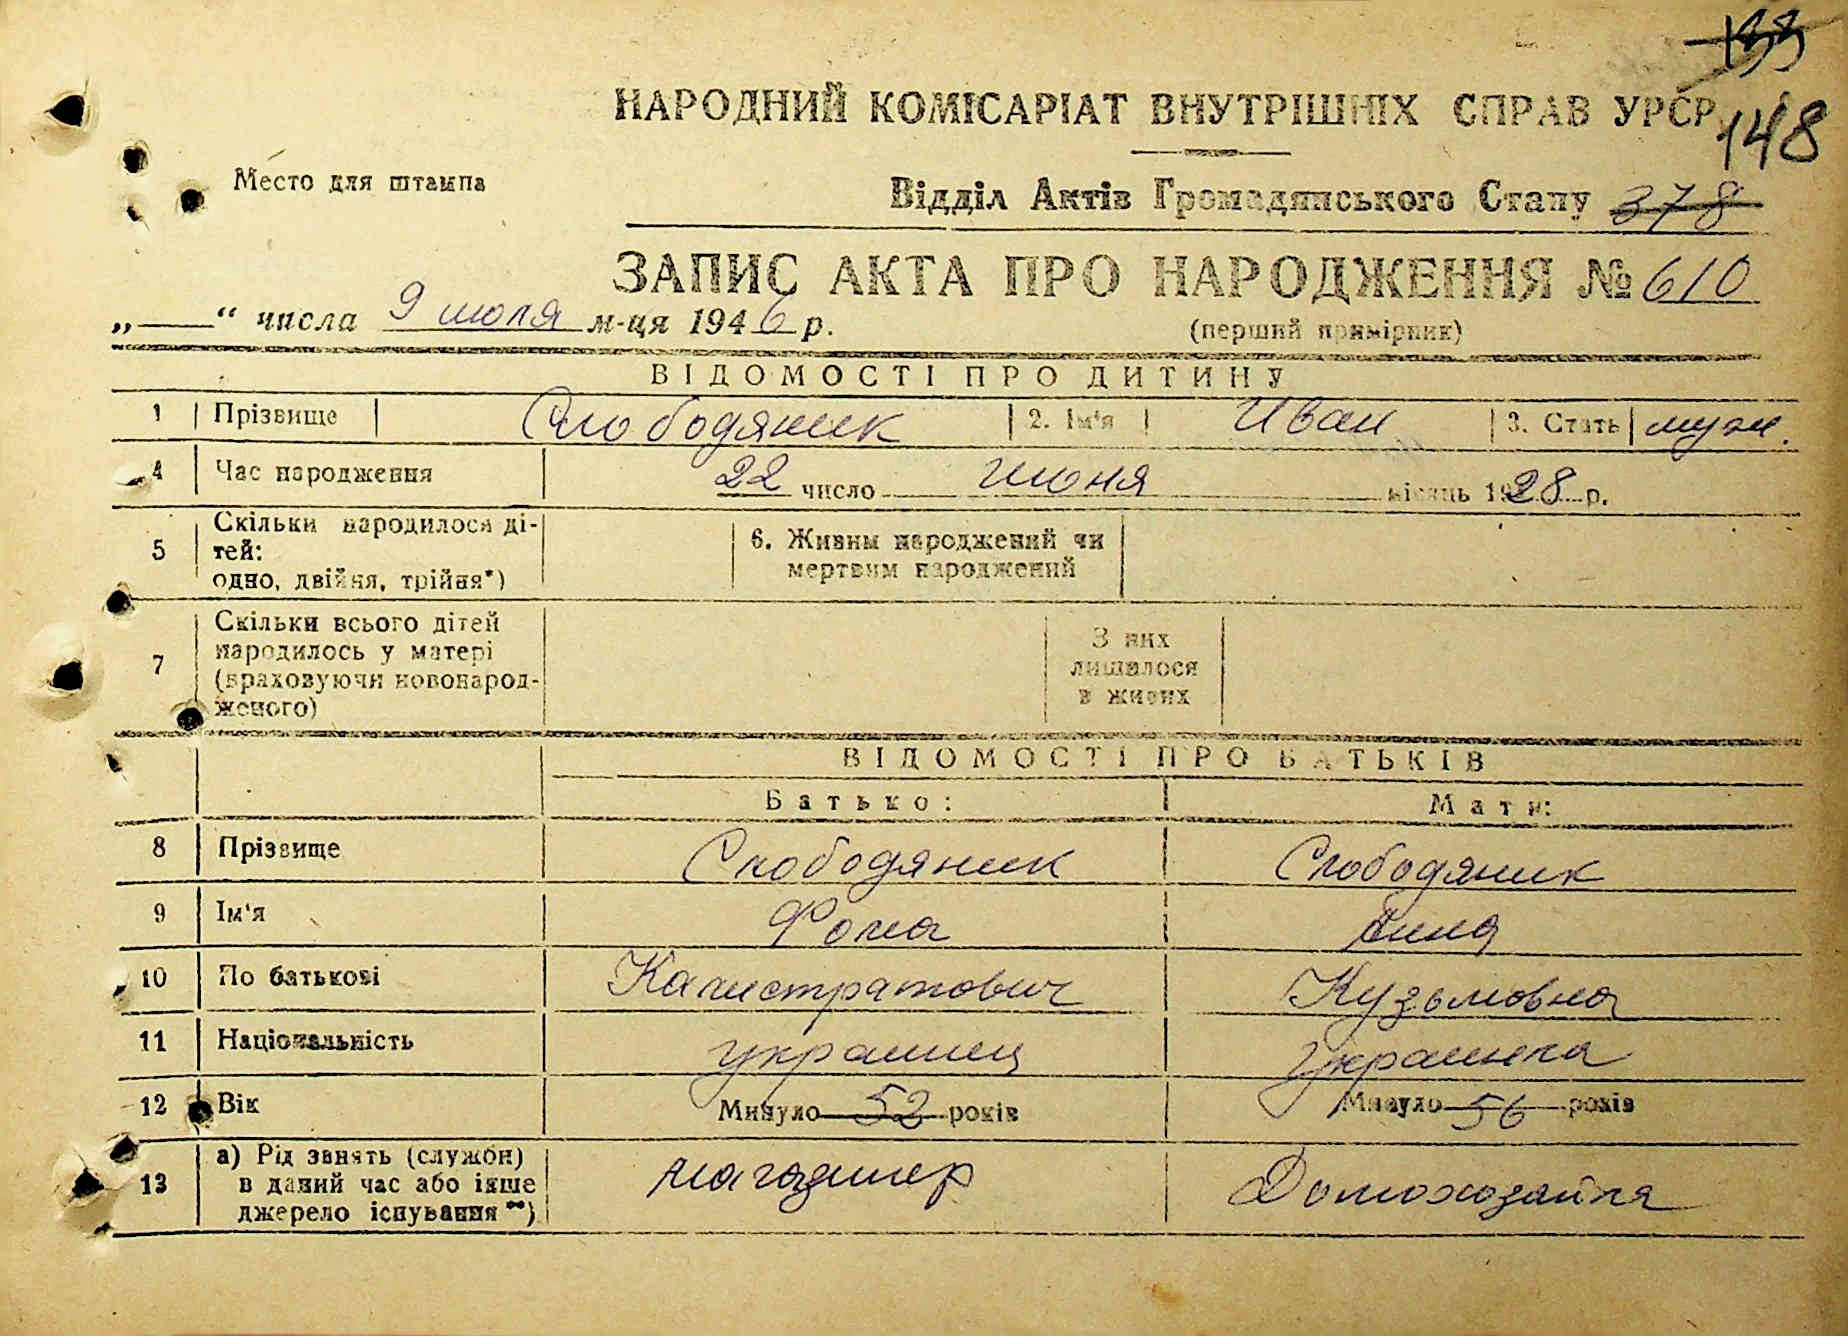 133
148
НАРОДНИЙ КОМІСАРІАТ ВНУТРІШНІХ СПРАВ УРСР
Место для штампа
Відділ Актів Громадянського Стану 378
ЗАПИС АКТА ПРО НАРОДЖЕННЯ № 610
„—“ числа 9 июля м-ця 1946 р.
(перший примірник)
ВІДОМОСТІ ПРО ДИТИНУ
1 Прізвище Слободяник 2. Ім'я Иван 3. Стать муж.
4 Час народження 22 число июня місяць 1928 р.
5 Скільки народилося ді-
тей:
одно, двійня, трійня*)
6. Живим народжений чи
мертвим народжений
7 Скільки всього дітей
народилось у матері
(враховуючи новонарод-
женого)
З них
лишилося
в живих
ВІДОМОСТІ ПРО БАТЬКІВ
Батько: Мати:
8 Прізвище Слободяник Слободяник
9 Ім'я Фома Анна
10 По батькові Калистратович Кузьмовна
11 Національність украинец украинка
12 Вік Минуло 52 років Минуло 56 років
13 а) Рід занять (служби)
в даний час або інше
джерело існування **)
магазинер Домохозайка